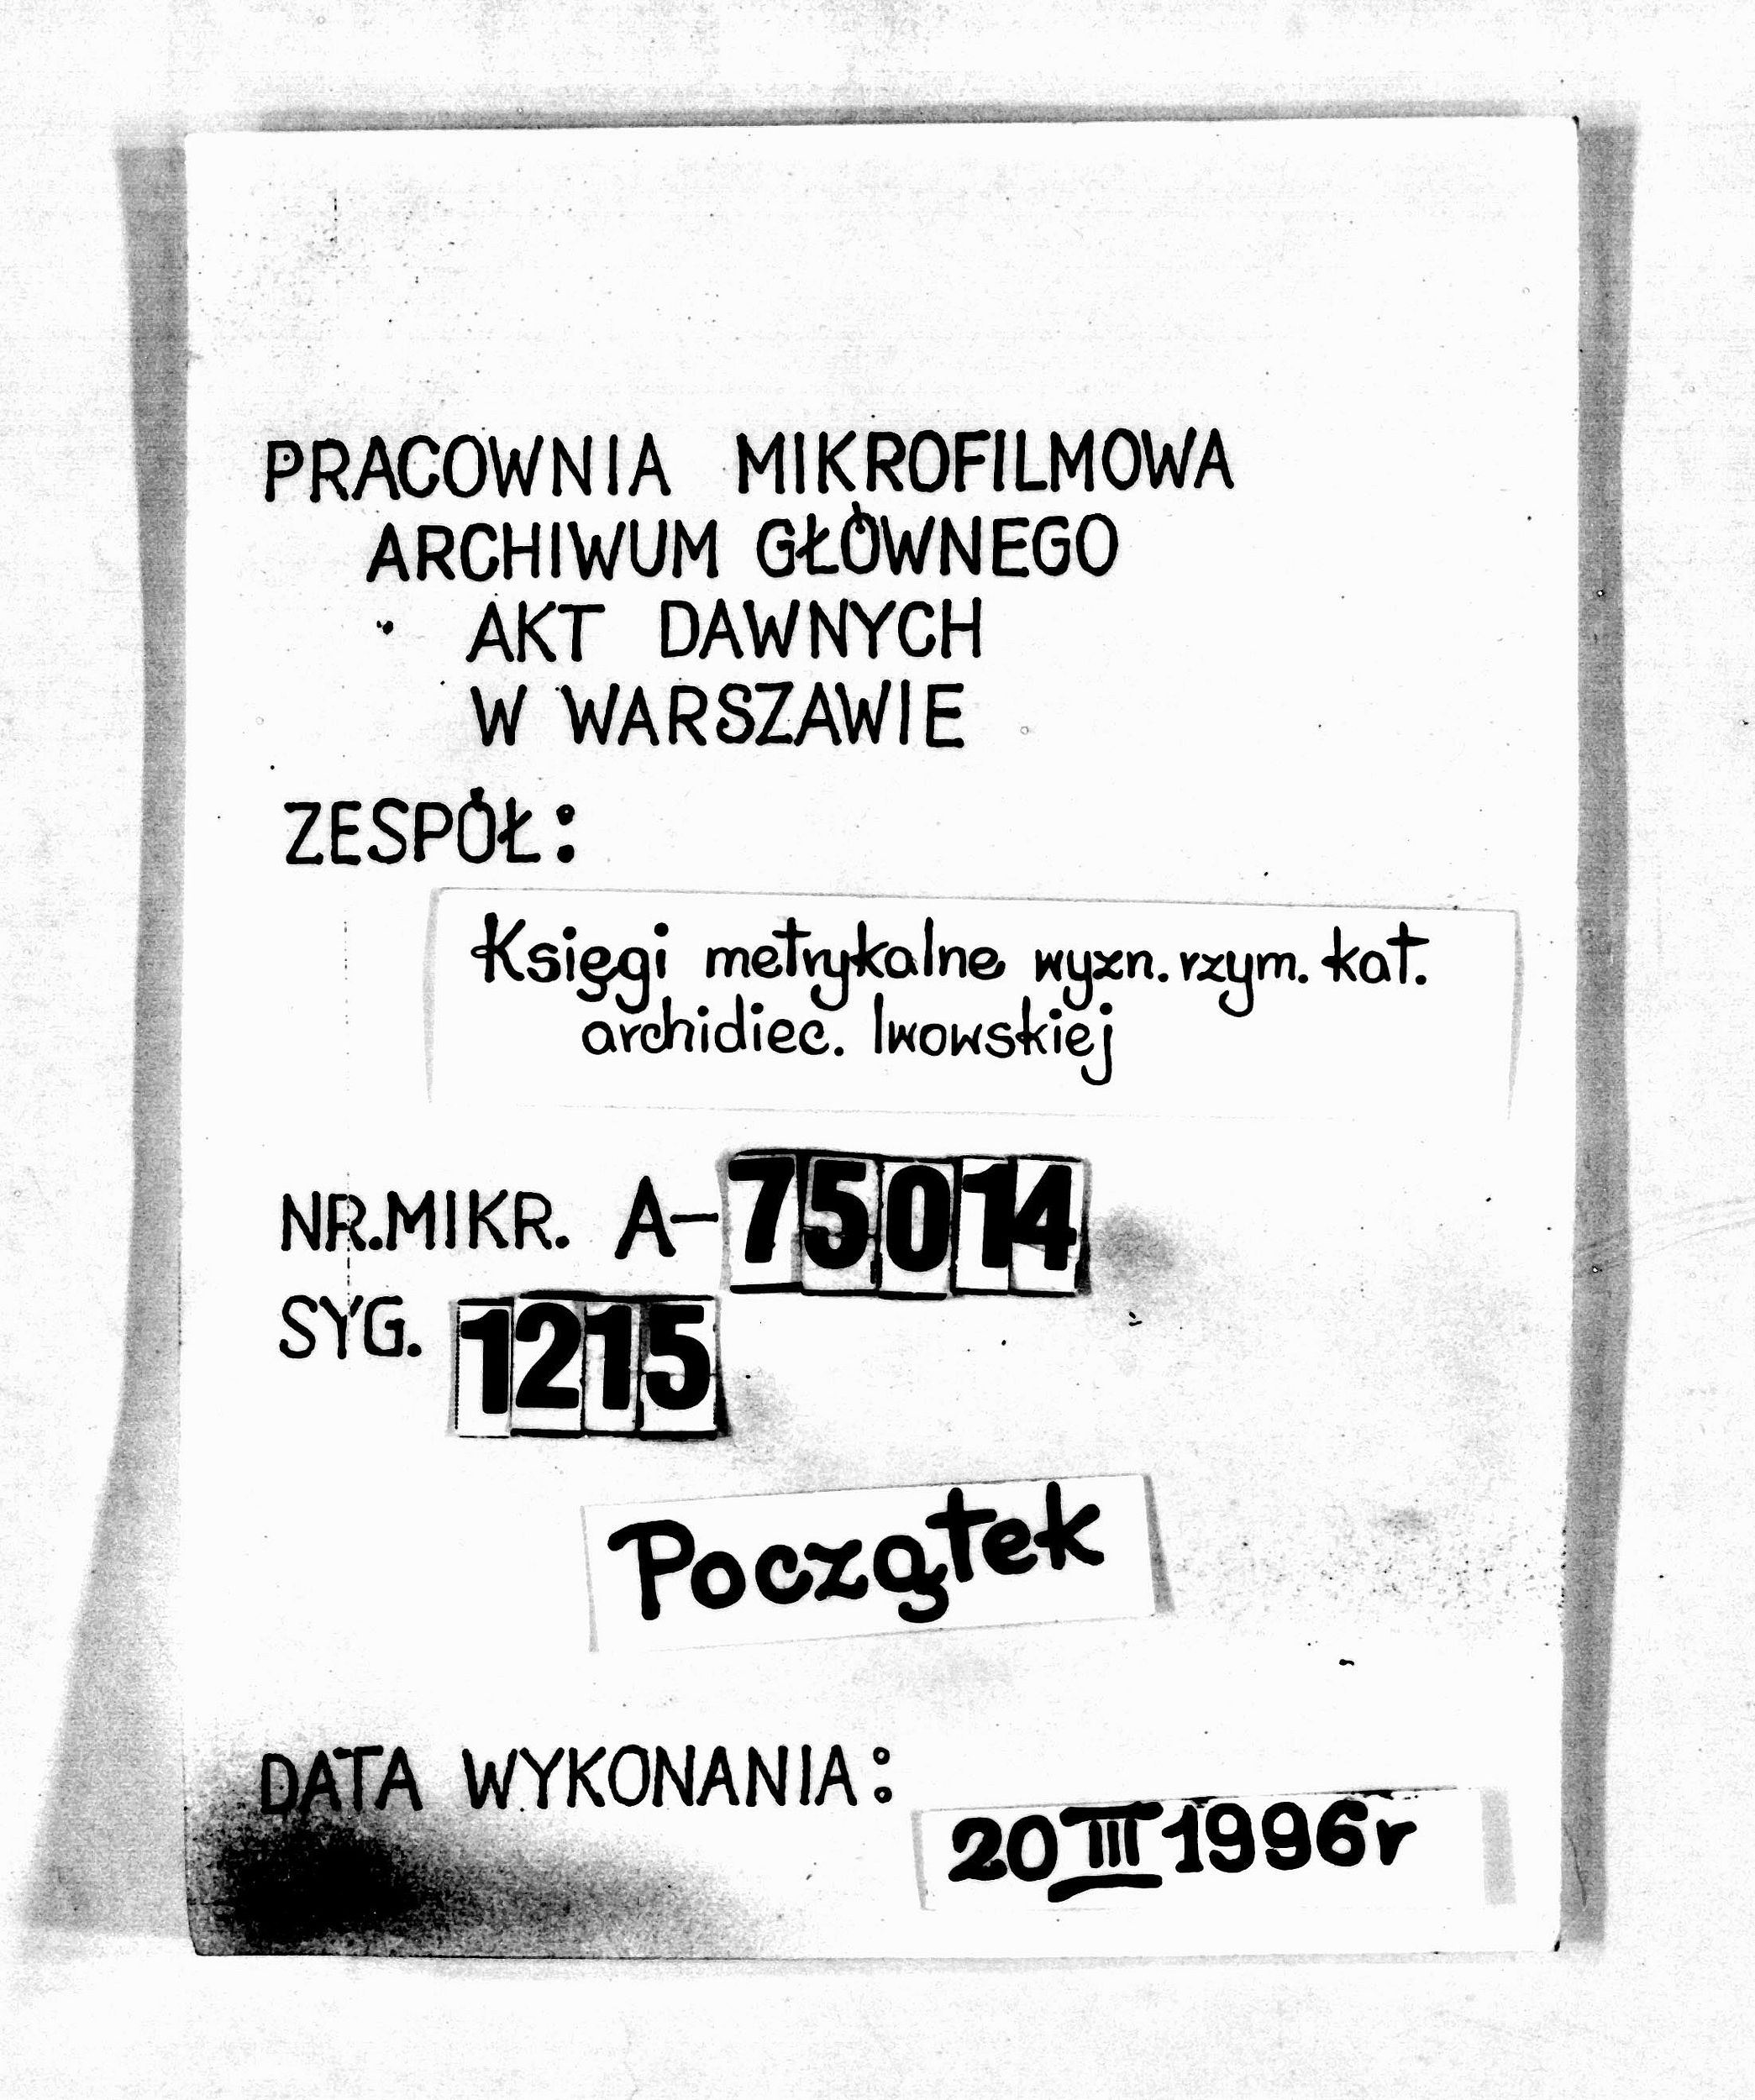 PRACOWNIA MIKROFILMOWA
ARCHIWUM GŁÓWNEGO
AKT DAWNYCH
W WARSZAWIE
ZESPÓŁ:
Księgi metrykalne wyzn. rzym. kat.
archidiec. lwowskiej
NR.MIKR. A-75014
SYG. 1215
Początek
DATA WYKONANIA:
20 III 1996r